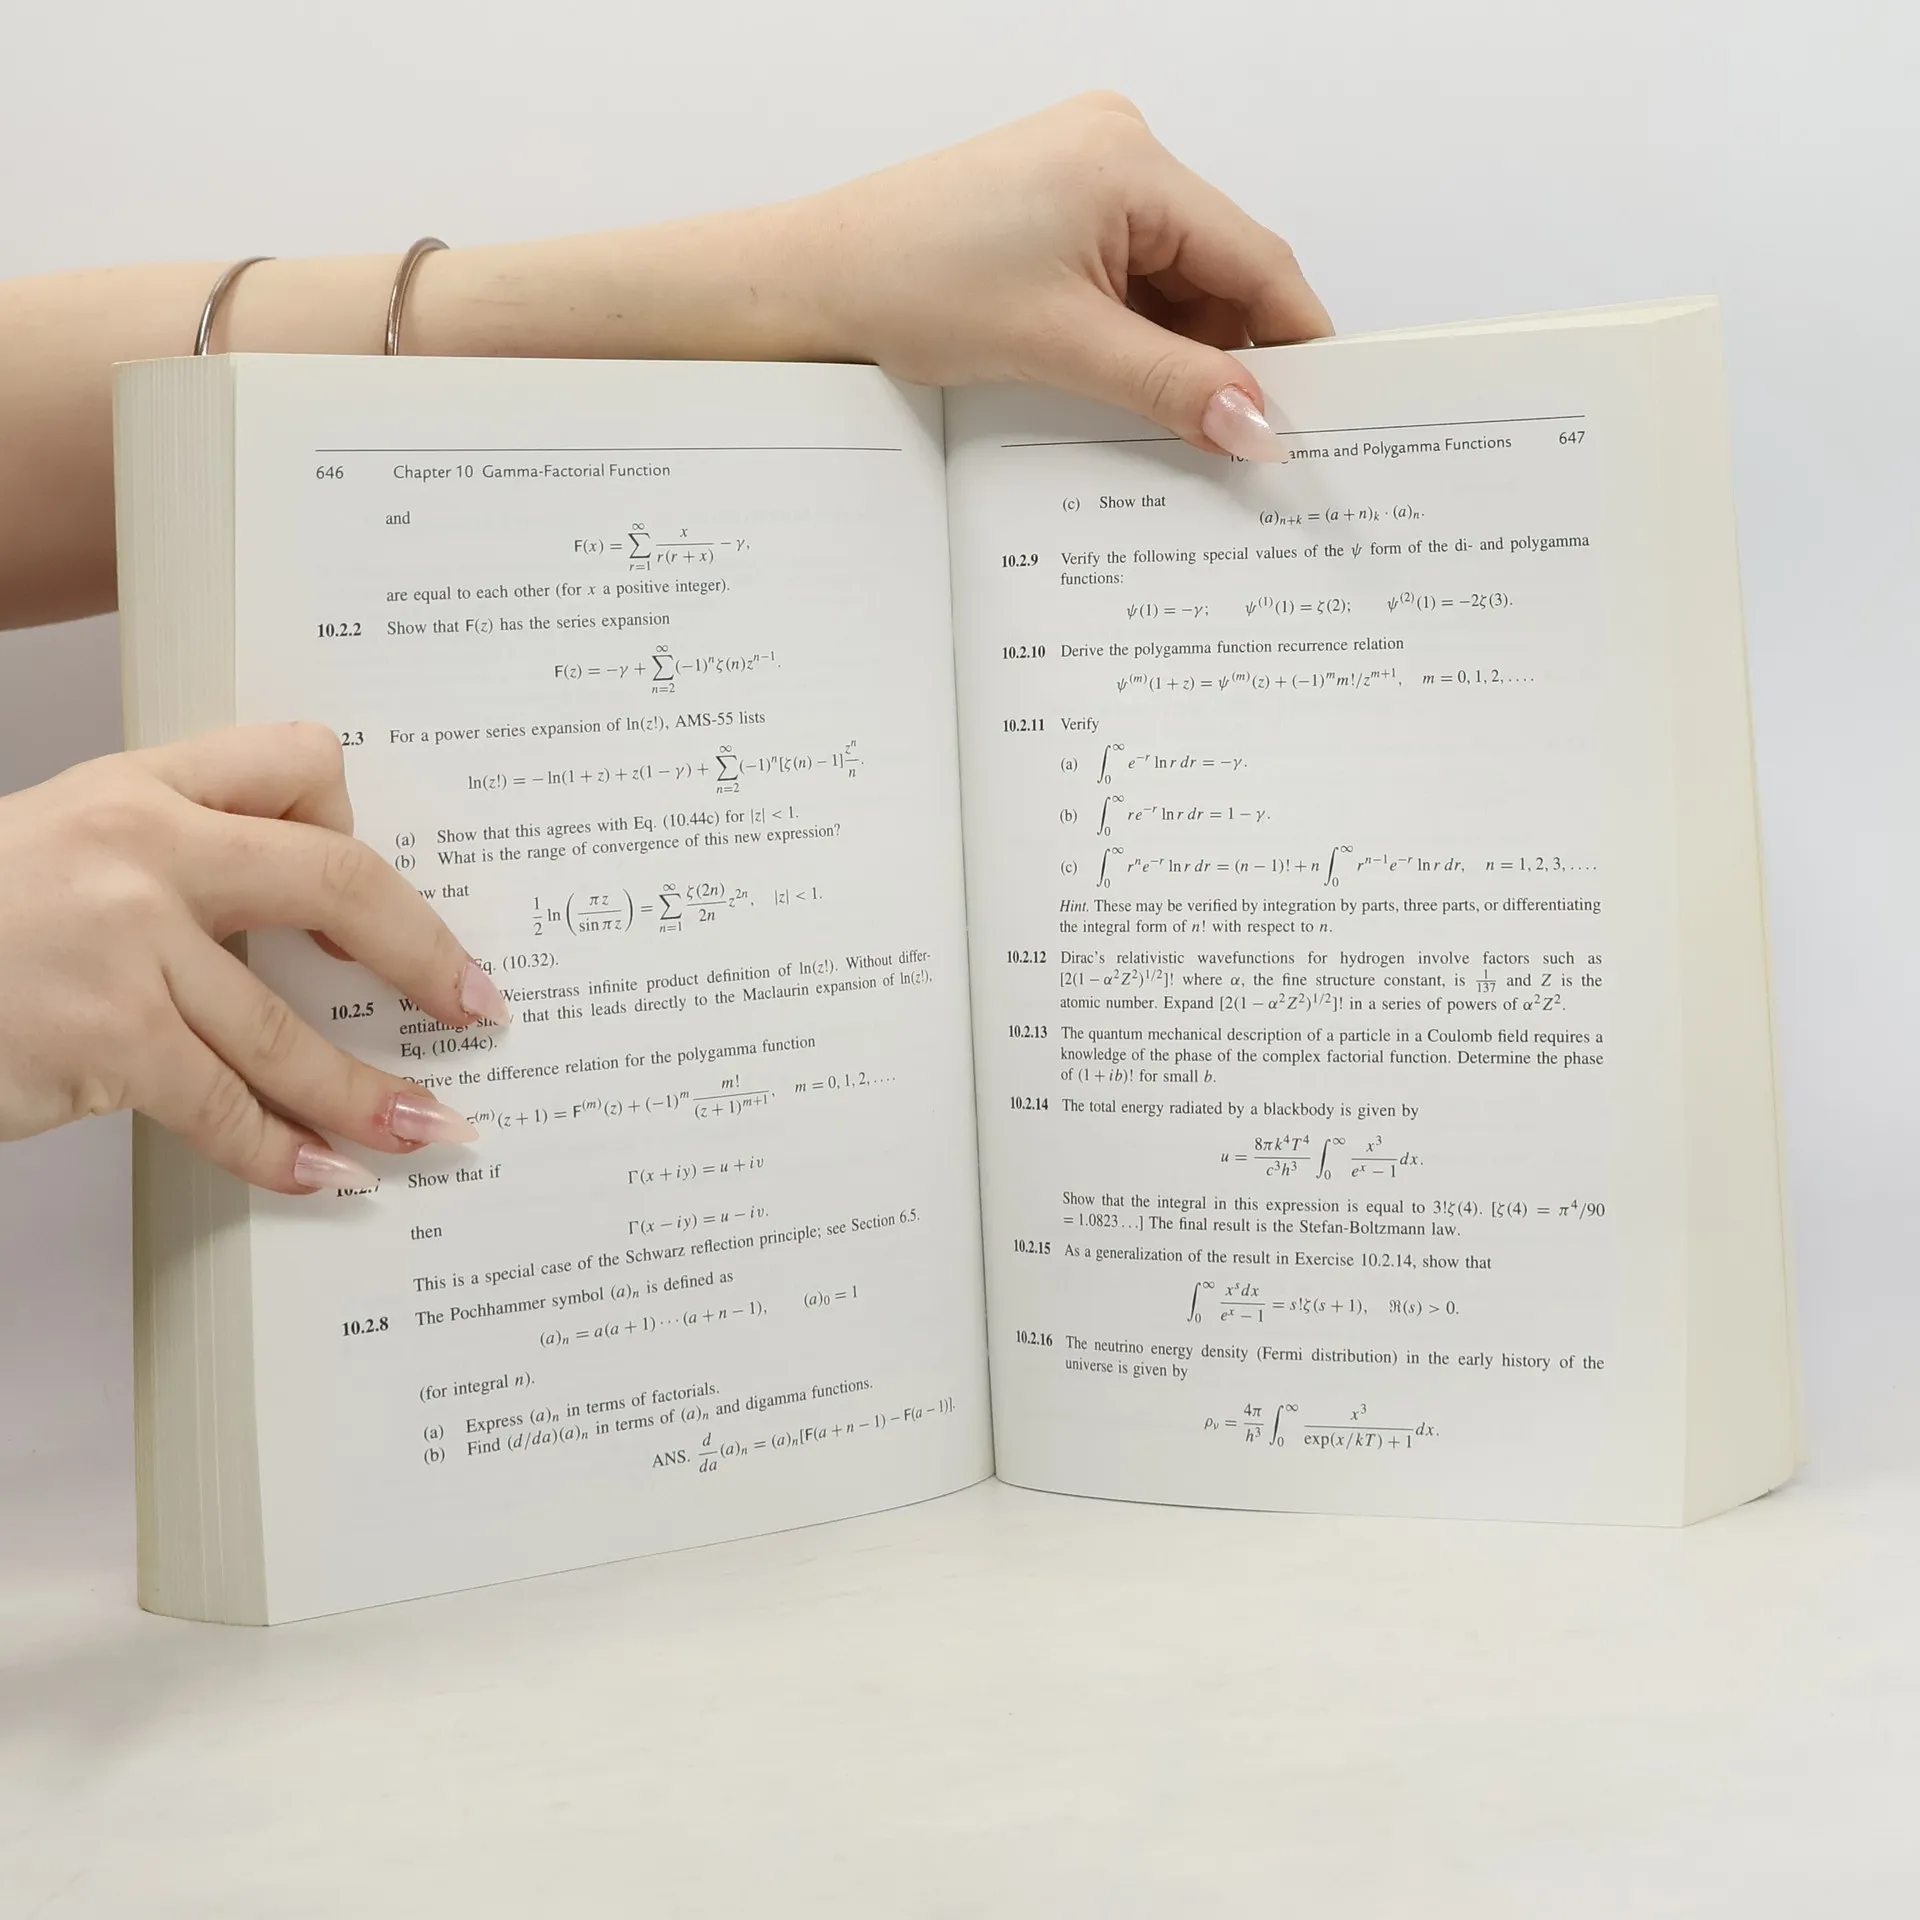 646 Chapter 10 Gamma-Factorial Function
and
F(x) = ∑_{r=1}^{∞} x/(r(r + x)) − γ,
are equal to each other (for x a positive integer).
10.2.2 Show that F(z) has the series expansion
F(z) = −γ + ∑_{n=2}^{∞} (−1)^n ζ(n)z^{n−1}.
2.3 For a power series expansion of ln(z!), AMS-55 lists
ln(z!) = − ln(1 + z) + z(1 − γ) + ∑_{n=2}^{∞} (−1)^n [ζ(n) − 1] z^n/n.
(a) Show that this agrees with Eq. (10.44c) for |z| < 1.
(b) What is the range of convergence of this new expression?
that
1/2 ln (πz/sin πz) = ∑_{n=1}^{∞} ζ(2n)/2n z^{2n}, |z| < 1.
(10.32).
10.2.5 Weierstrass infinite product definition of ln(z!). Without differ-
that this leads directly to the Maclaurin expansion of ln(z!),
Eq. (10.44c).
the difference relation for the polygamma function
^{(m)}(z + 1) = F^{(m)}(z) + (−1)^m m!/(z + 1)^{m+1}, m = 0, 1, 2, ....
Show that if
Γ(x + iy) = u + iv
then
Γ(x − iy) = u − iv.
This is a special case of the Schwarz reflection principle; see Section 6.5.
10.2.8 The Pochhammer symbol (a)_n is defined as
(a)_n = a(a + 1) ··· (a + n − 1), (a)_0 = 1
(for integral n).
(a) Express (a)_n in terms of factorials.
(b) Find (d/da)(a)_n in terms of (a)_n and digamma functions.
ANS. d/da (a)_n = (a)_n[F(a + n − 1) − F(a − 1)].
and Polygamma Functions 647
(c) Show that
(a)_{n+k} = (a + n)_k · (a)_n.
10.2.9 Verify the following special values of the ψ form of the di- and polygamma
functions:
ψ(1) = −γ; ψ^{(1)}(1) = ζ(2); ψ^{(2)}(1) = −2ζ(3).
10.2.10 Derive the polygamma function recurrence relation
ψ^{(m)}(1 + z) = ψ^{(m)}(z) + (−1)^m m!/z^{m+1}, m = 0, 1, 2, ....
10.2.11 Verify
(a) ∫_0^∞ e^{−r} ln r dr = −γ.
(b) ∫_0^∞ re^{−r} ln r dr = 1 − γ.
(c) ∫_0^∞ r^n e^{−r} ln r dr = (n − 1)! + n ∫_0^∞ r^{n−1}e^{−r} ln r dr, n = 1, 2, 3, ....
Hint. These may be verified by integration by parts, three parts, or differentiating
the integral form of n! with respect to n.
10.2.12 Dirac's relativistic wavefunctions for hydrogen involve factors such as
[2(1 − α²Z²)^{1/2}]! where α, the fine structure constant, is 1/137 and Z is the
atomic number. Expand [2(1 − α²Z²)^{1/2}]! in a series of powers of α²Z².
10.2.13 The quantum mechanical description of a particle in a Coulomb field requires a
knowledge of the phase of the complex factorial function. Determine the phase
of (1 + ib)! for small b.
10.2.14 The total energy radiated by a blackbody is given by
u = 8πk⁴T⁴/c³h³ ∫_0^∞ x³/(e^x − 1) dx.
Show that the integral in this expression is equal to 3!ζ(4). [ζ(4) = π⁴/90
= 1.0823...] The final result is the Stefan-Boltzmann law.
10.2.15 As a generalization of the result in Exercise 10.2.14, show that
∫_0^∞ x^s dx/(e^x − 1) = s!ζ(s + 1), ℜ(s) > 0.
10.2.16 The neutrino energy density (Fermi distribution) in the early history of the
universe is given by
ρ_ν = 4π/h³ ∫_0^∞ x³/(exp(x/kT) + 1) dx.